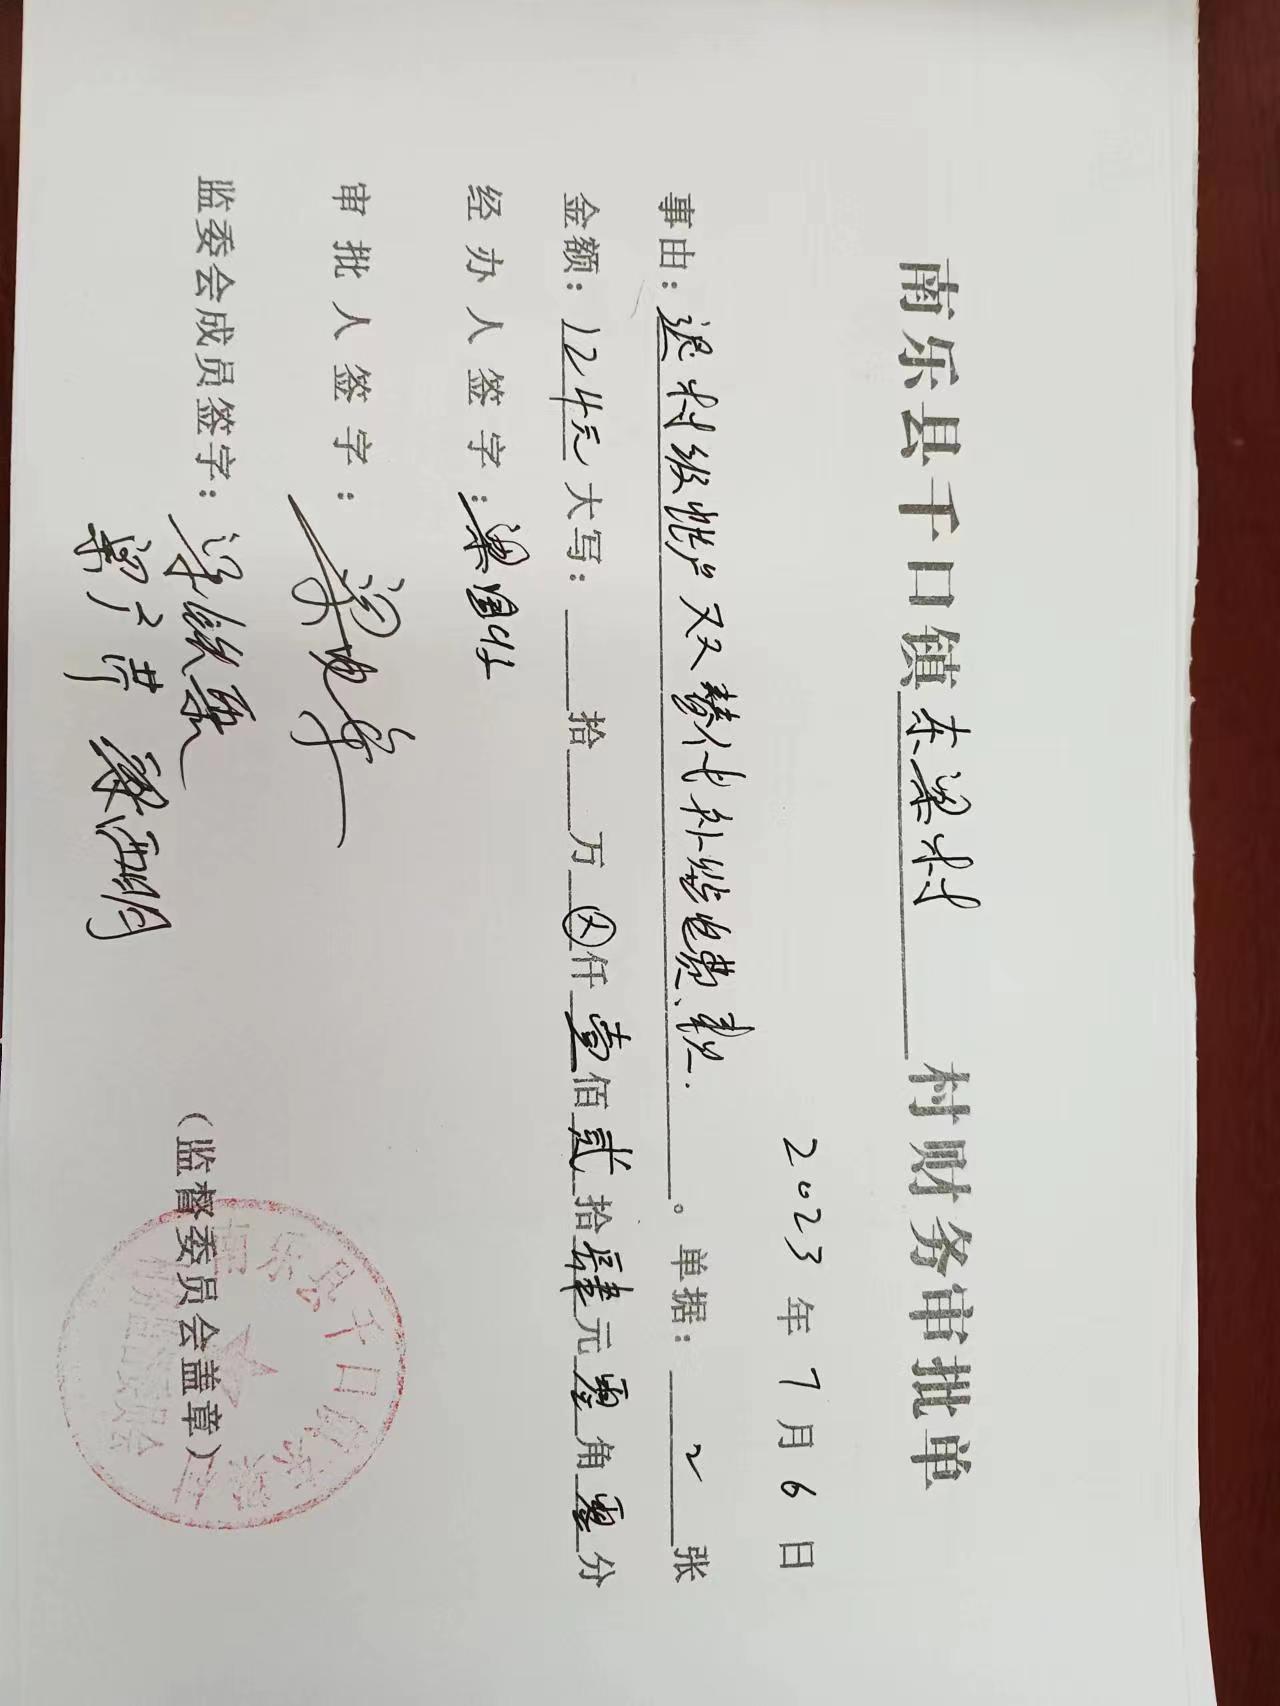 南乐县千口镇东梁村村财务审批单
2023年7月6日
事由：退村级帐户双替代补贴电费款.。单据：2张
金额：124元大写：拾万⊗仟壹佰贰拾肆元零角零分
经办人签字：梁国
审批人签字：梁
监委会成员签字：
梁广
（监督委员会盖章）
南乐县千口镇东梁村